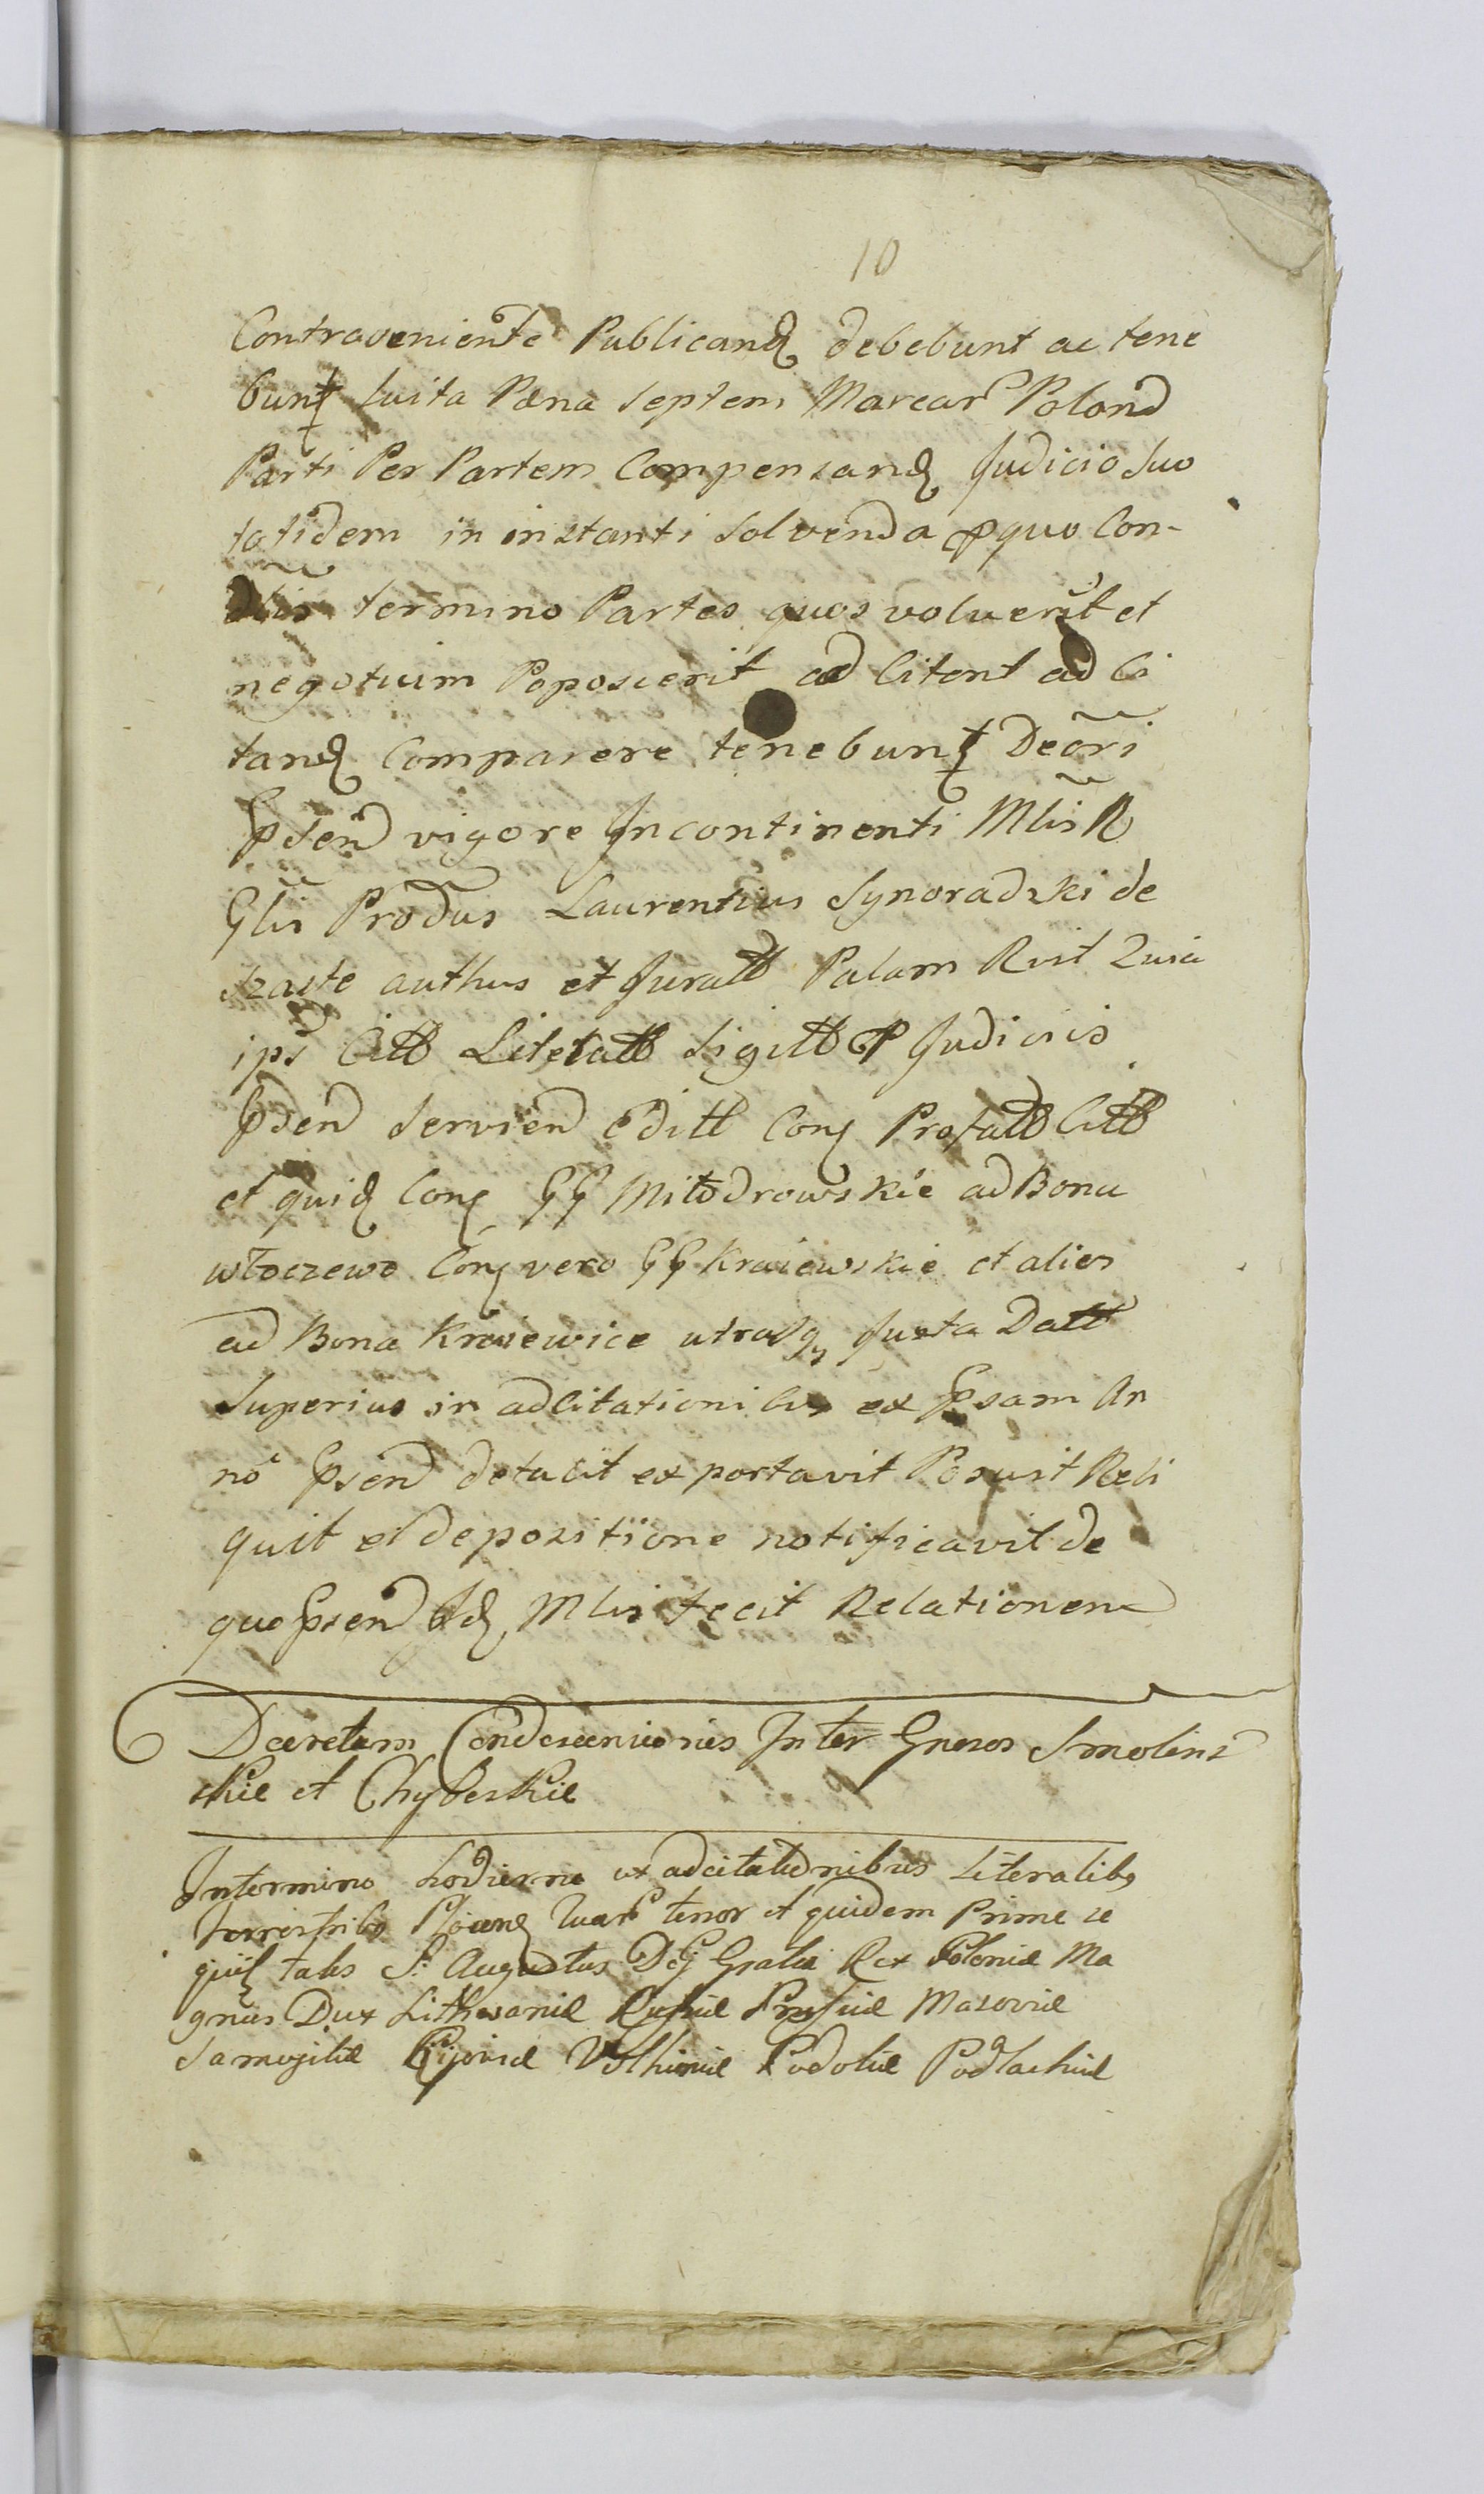 10
Contraveniente Publicand debebunt ac tene
bunt luita Pœna septem Marcar Polond
Parti Per Partem Compensand Judicio suo
totidem in instanti solvenda pquo Con-
termino Partes quos voluerit et
negotium Poposcerit ad Citent ad Ci
tand Comparere tenebunt Decri
psen vigore Incontinenti Mlis R
Glis Produs Laurentius Synoradzki de
szaste authus et Juratt Palam Rvit Quia
ips Citt Literatt Sigitt P Judiciis
psen Servien Editt Conq Profatt Citt
et quid Conq GG Miłodrowskie ad Bona
włoczewo Conq vero GG Kraiewskie et alios
ad Bona Kraiewice utrasq Juxta Datt
Superius in adcitationibus expssam An
no psen detulit exportavit Posuit Reli
quit et depositione notificavit de
quo psen Id Mlis fecit Relationem
Decretum Condescensionis Inter Gnesos Smolens
skie et Chybeskie
Intermino hodierno ex adcitationibus Literalibs
terrestribs quar tenor et quidem Prime se
quit talis S: Augustus Dei Gratia Rex Poloniæ Ma
gnus Dux Lithvaniæ Russiæ Prussiæ Masoviæ
Samogitiæ Kijoviæ Volhiniæ Podoliæ Podlachiæ